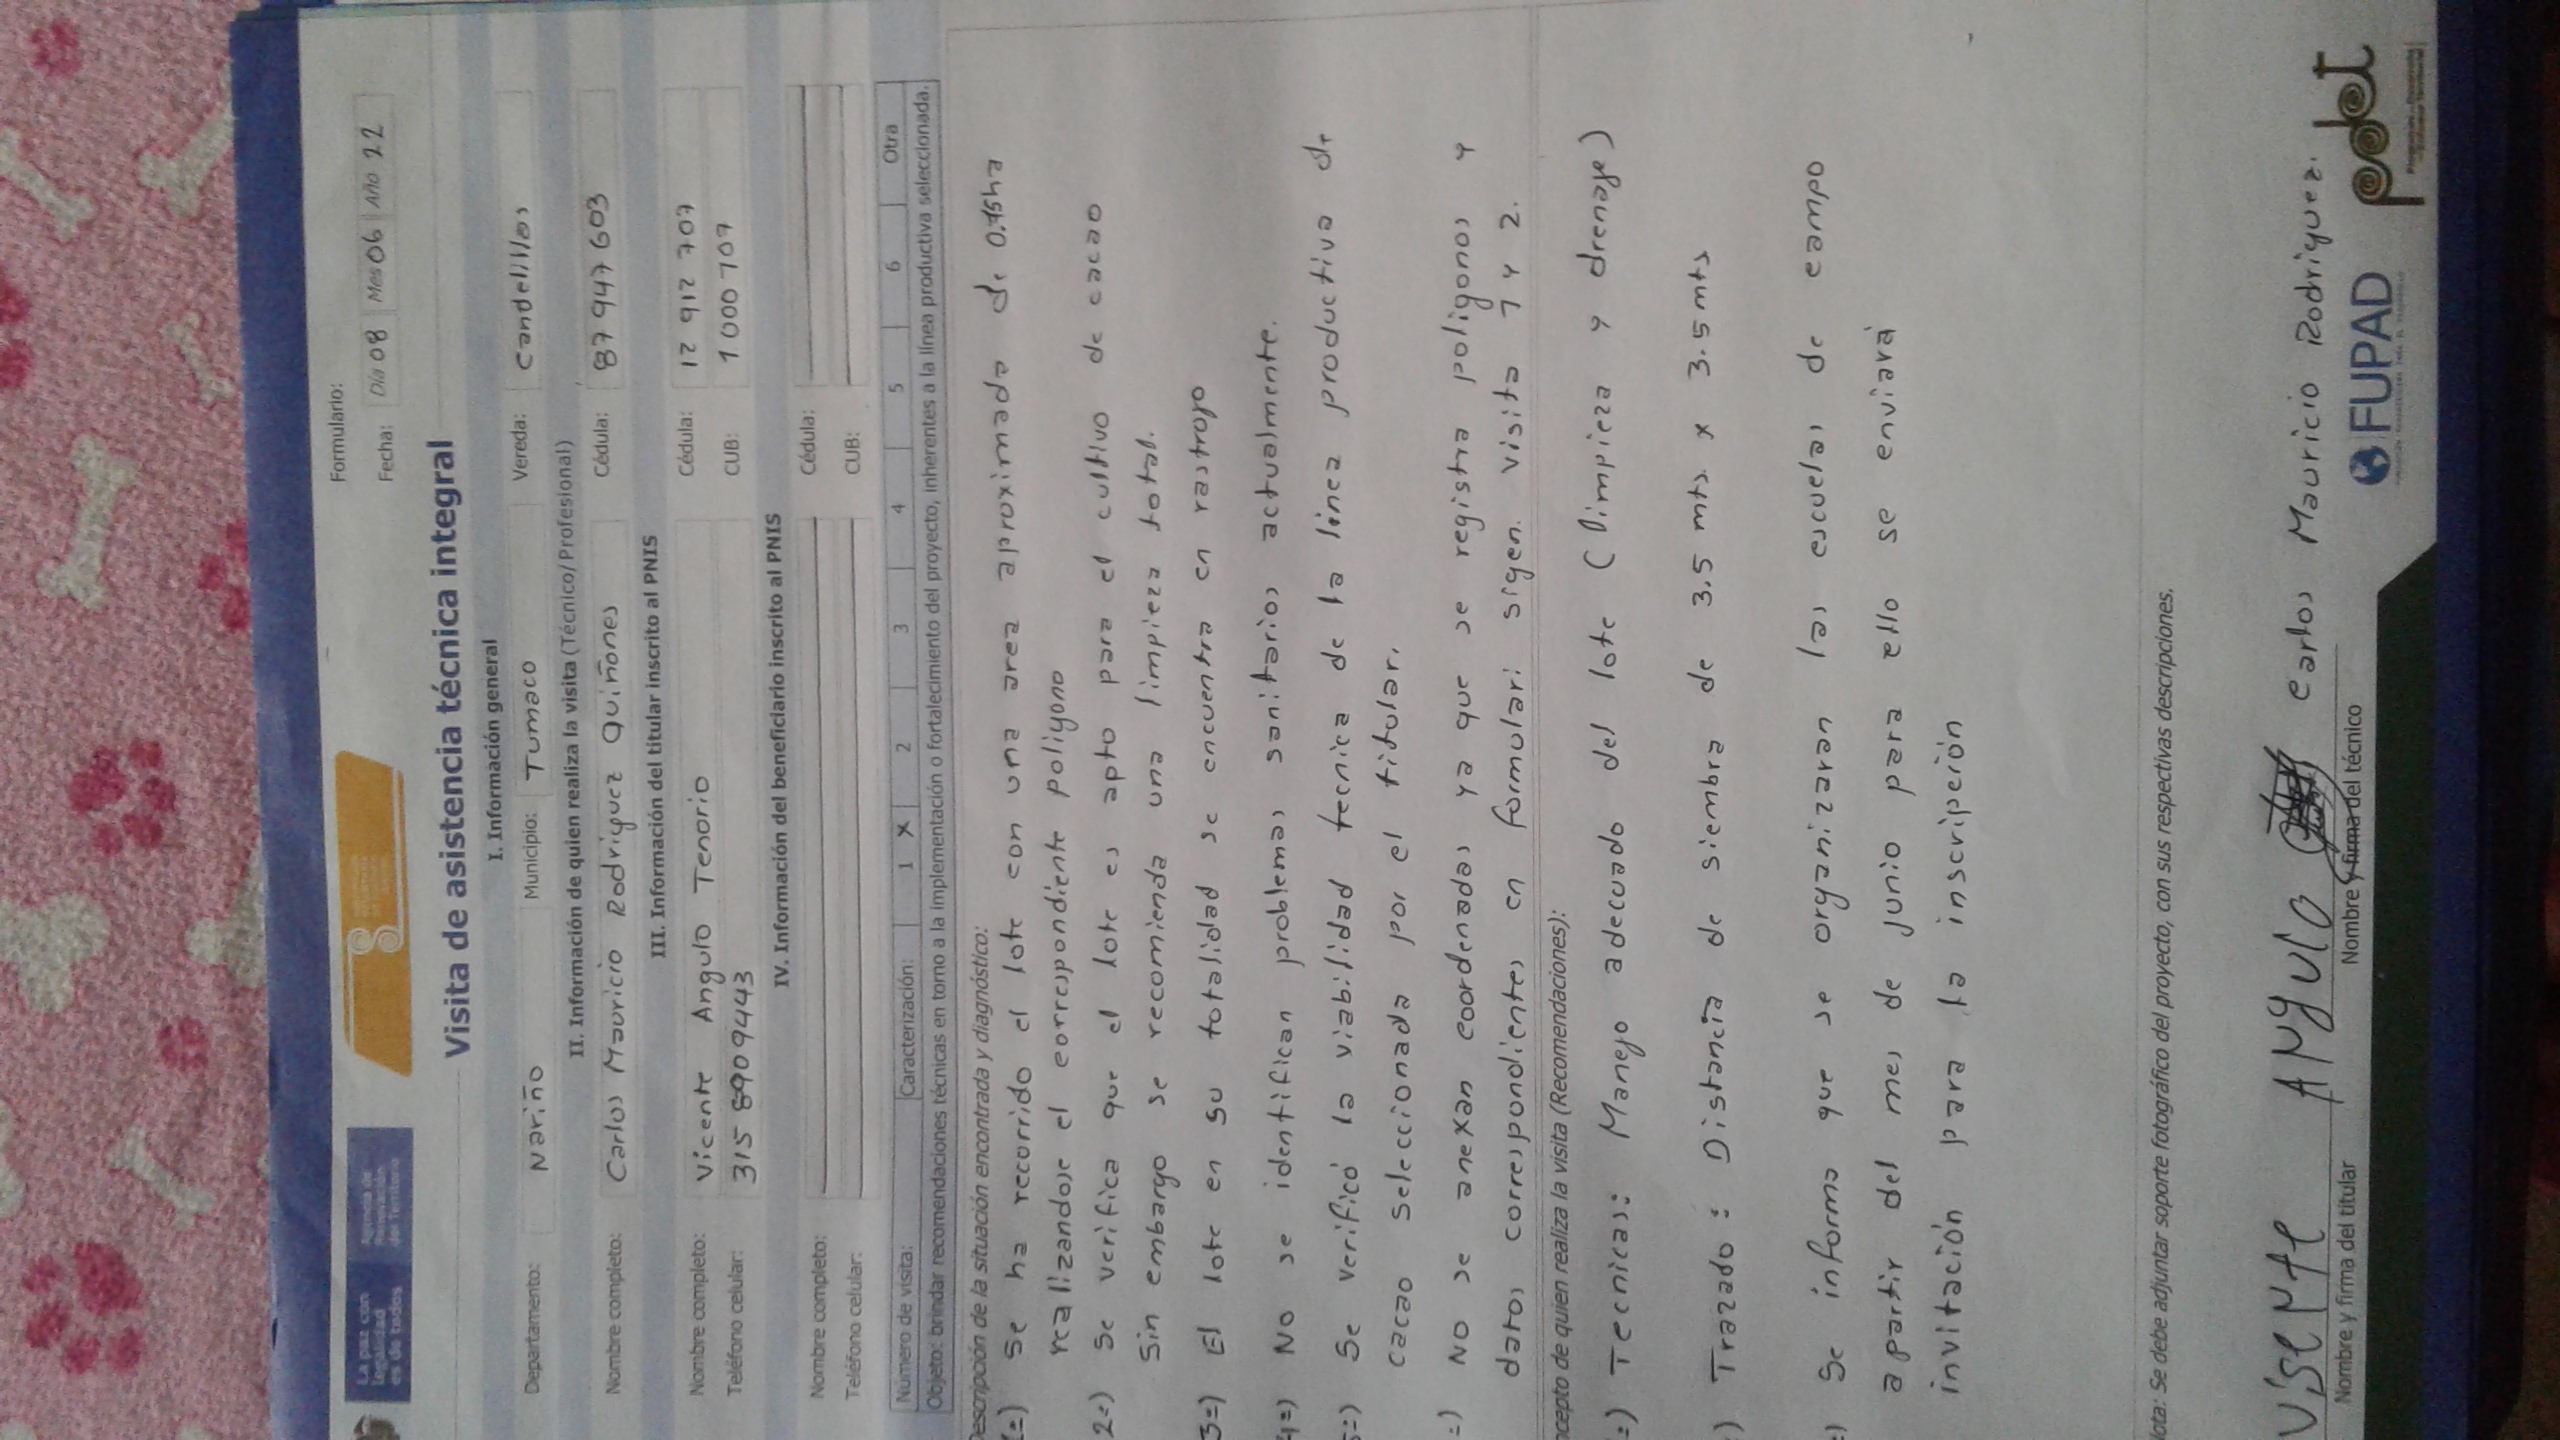 La paz con
legalidad
es de todos
Agencia de
Renovación
del Territorio
Formulario:
Fecha: Día 08 Mes 06 Año 22
Visita de asistencia técnica integral
I. Información general
Departamento: Nariño Municipio: Tumaco Vereda: Candelillos
II. Información de quien realiza la visita (Técnico/ Profesional)
Nombre completo: Carlos Mauricio Rodriguez Quiñones Cédula: 87 947 603
III. Información del titular inscrito al PNIS
Nombre completo: Vicente Angulo Tenorio Cédula: 12 912 707
Teléfono celular: 315 8909443 CUB: 1000 707
IV. Información del beneficiario inscrito al PNIS
Nombre completo: Cédula:
Teléfono celular: CUB:
Número de visita: Caracterización: 1 X 2 3 4 5 6 Otra
Objeto: brindar recomendaciones técnicas en torno a la implementación o fortalecimiento del proyecto, inherentes a la línea productiva seleccionada.
Descripción de la situación encontrada y diagnóstico:
1=) Se ha recorrido el lote con una area aproximada de 0.75ha
realizandose el correspondiente poligono
2=) Se verifica que el lote es apto para el cultivo de cacao
Sin embargo se recomienda una limpieza total.
3=) El lote en su totalidad se encuentra en rastrojo
4=) No se identifican problemas sanitarios actualmente.
5=) Se verificó la viabilidad tecnica de la linea productiva de
cacao seleccionada por el titular.
=) No se anexan coordenadas ya que se registra poligonos y
datos correspondientes en formulari sigen. visita 1 y 2.
ncepto de quien realiza la visita (Recomendaciones):
=) Tecnicas: Manejo adecuado del lote (limpieza y drenaje)
) Trazado: Distancia de siembra de 3,5 mts. x 3.5 mts
=) Se informa que se organizaran las escuelas de campo
a partir del mes de junio para ello se enviará
invitación para la inscripción
Nota: Se debe adjuntar soporte fotográfico del proyecto, con sus respectivas descripciones.
ViSENtE ANgulo Carlos Mauricio Rodriguez.
Nombre y firma del titular Nombre y firma del técnico
FUPAD
pdet